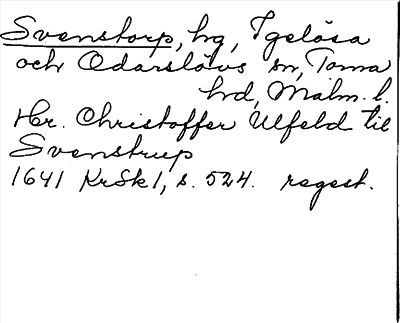 Svenstorp, hg, Igelösa
och Odarslövs sn, Torna
hrd, Malm. l.
Hr. Christoffer Ulfeld til
Svenstrup
1641 KrSk 1, s. 524. regest.